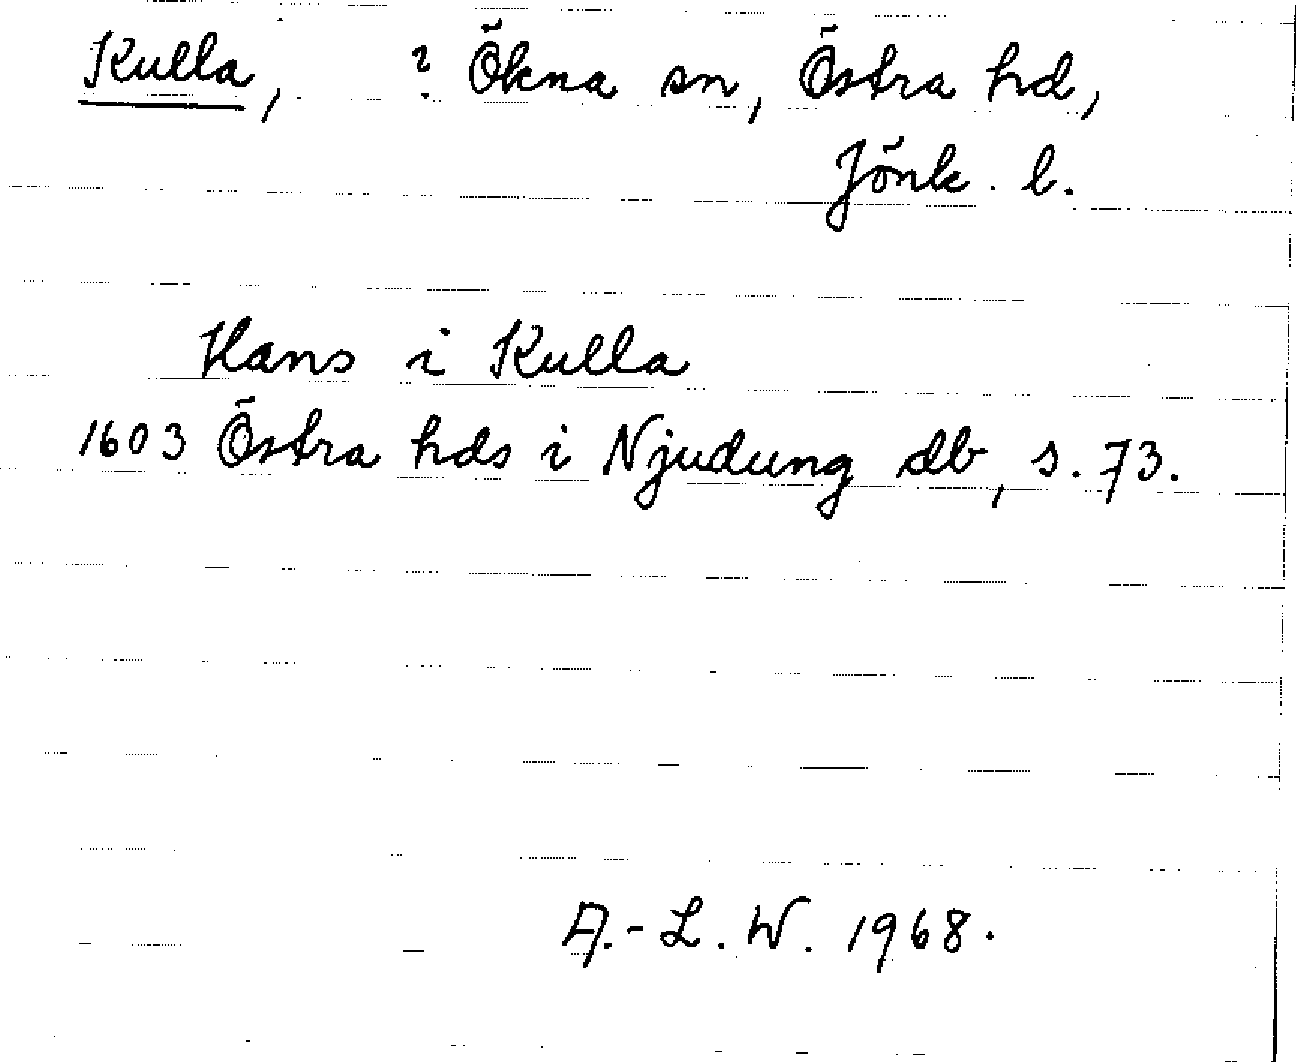 Kulla, ? Ökna sn, Östra hd,
Jönk. l.
Hans i Kulla
1603 Östra hds i Njudung db, s. 73.
A.-L. W. 1968.